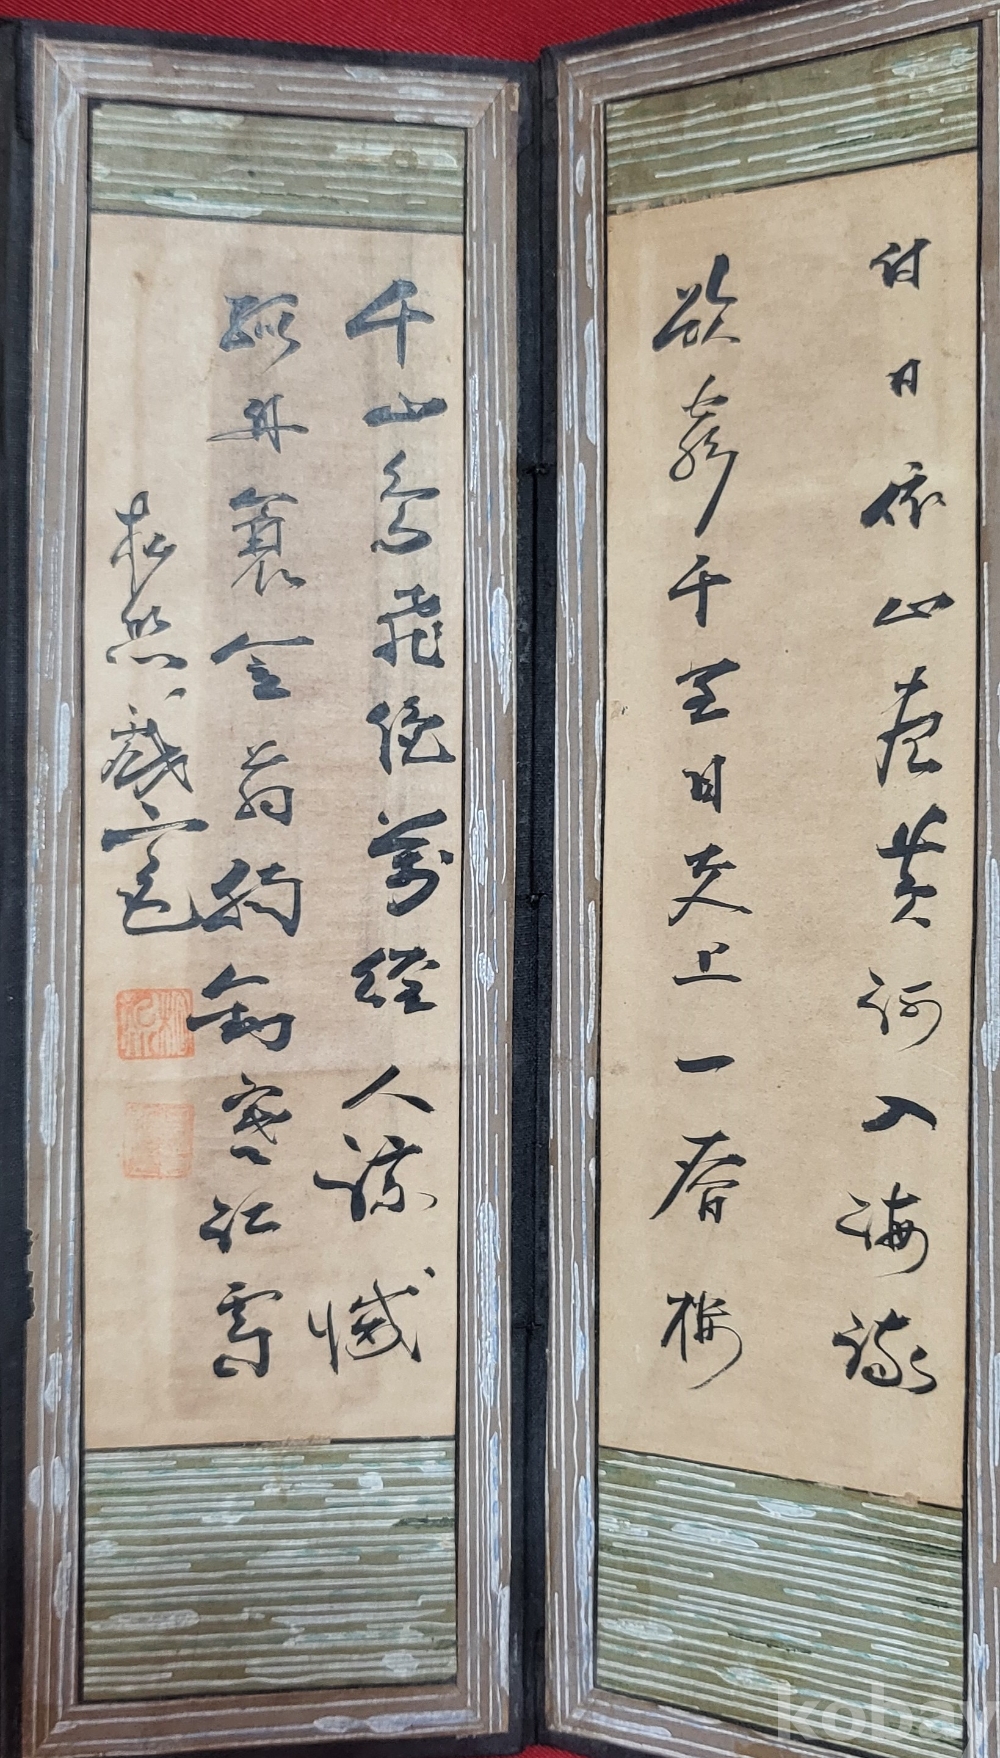 白日依山盡黃河入海流
欲窮千里目更上一層樓
千山鳥飛絕萬徑人蹤滅
孤舟蓑笠翁獨釣寒江雪
kobay